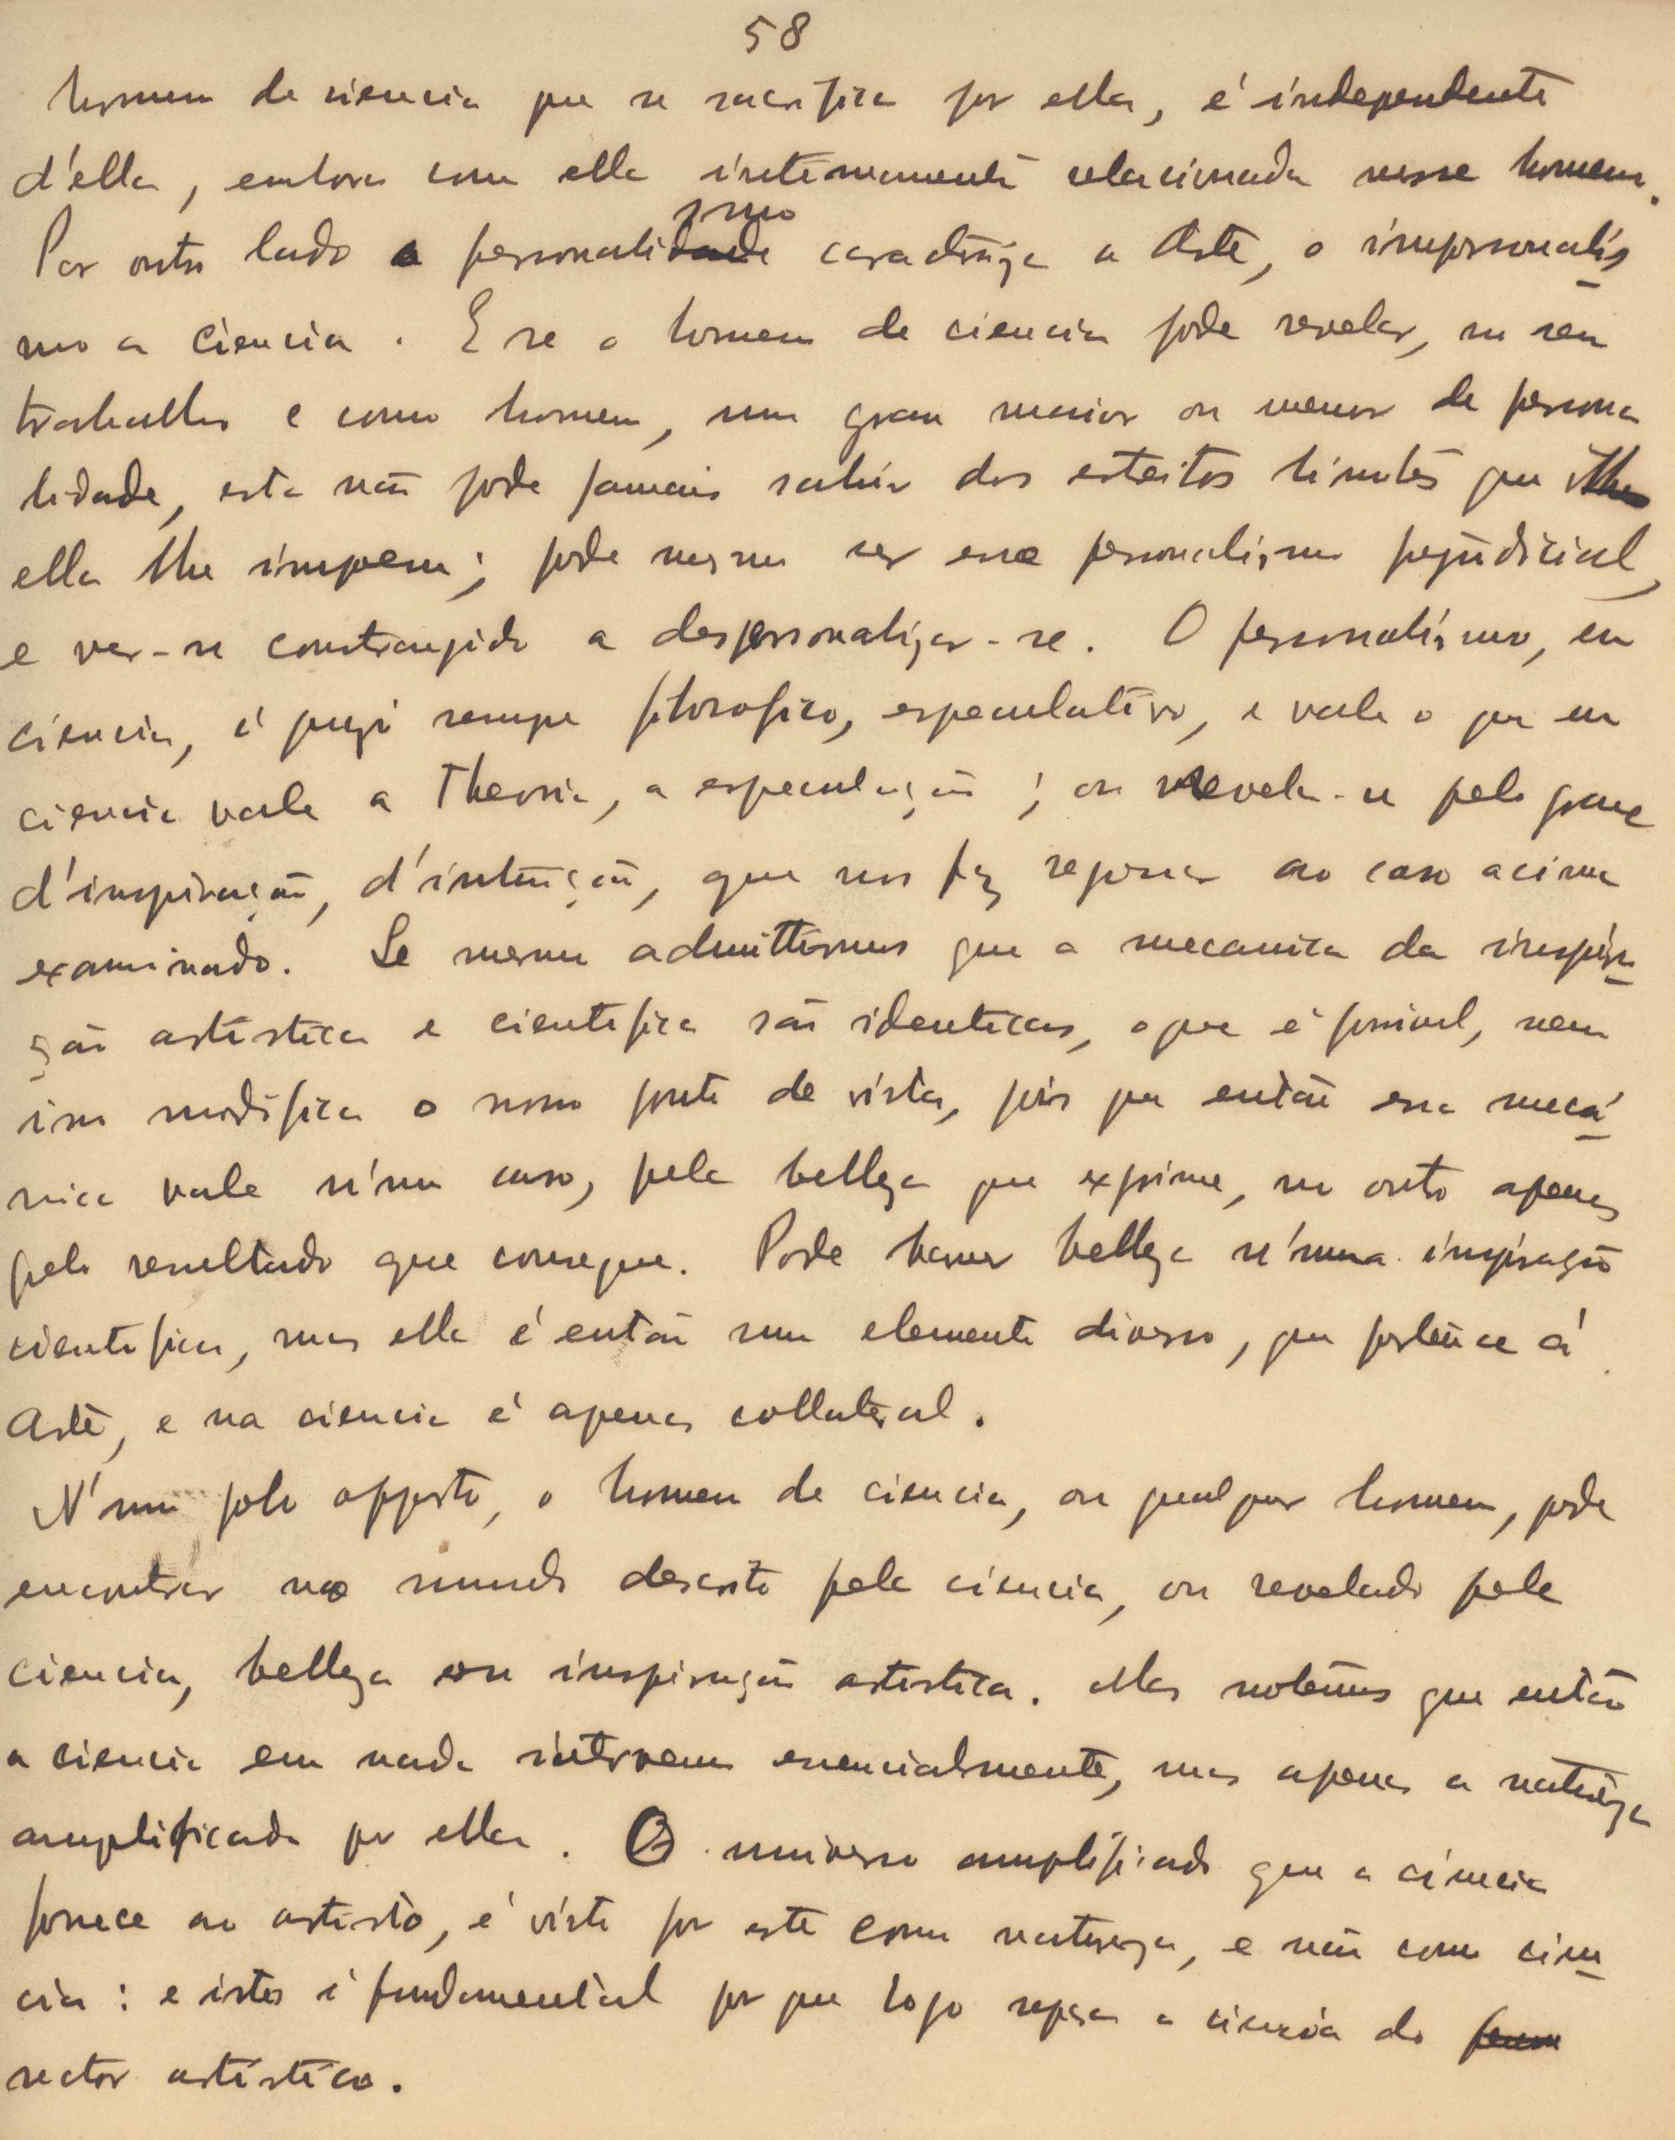 58
homem de sciencia que se sacrifica por ella, é independente
d'ella, embora com ella intimamente relacionada nesse homem.
Por outro lado o personalismo caracteriza a Arte, o impersonalis
mo a Ciencia. E se o homem de ciencia pode revelar, no seu
trabalho e como homem, um grau maior ou menor de persona
lidade, esta não pode jamais sahir dos estreitos limites que
ella lhe impoem; pode mesmo ser esse personalismo prejudicial,
e ver-se constrangido a despersonalizar-se. O personalismo, em
ciencia, é quasi sempre filosofico, especulativo, e vale o que em
ciencia vale a Theoria, a especulação; ou revela-se pelo grau
d'inspiração, d'intuição, que nos faz regressar ao caso acima
examinado. Se mesmo admittirmos que a mecanica da inspira
ção artistica e cientifica são identicas, o que é possivel, nem
isso modifica o nosso ponto de vista, pois que então essa mecâ
nica vale n'um caso, pela belleza que exprime, no outro apenas
pelo resultado que consegue. Pode haver belleza n'uma inspiração
cientifica, mas ella é então um elemento diverso, que pertence á
Arte, e na ciencia é apenas collateral.
N'um polo opposto, o homem de ciencia, ou qualquer homem, pode
encontrar no mundo descrito pela ciencia, ou revelado pela
ciencia, belleza ou inspiração artistica. Mas notemos que então
a ciencia em nada intervem essencialmente, mas apenas a natureza
amplificada por ella. O universo amplificado que a ciencia
fornece ao artista, é visto por este como natureza, e não como cien
cia: e isto é fundamental por que logo separa a ciencia do
sector artistico.